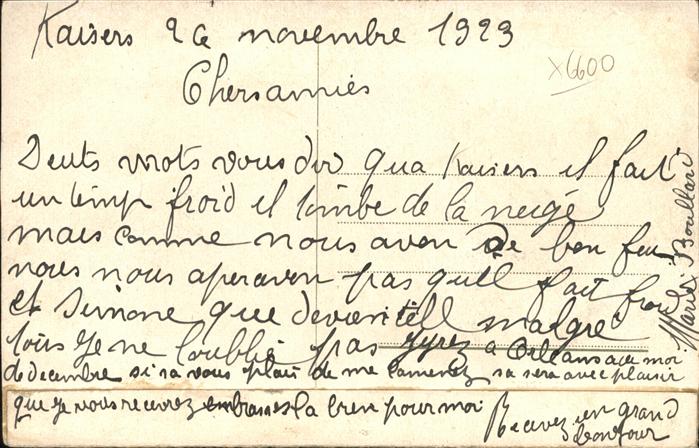 Kaisers 26 novembre 1923
x6600
Chersamies
Deuts mots vous dir qua Kaisers il fait
un temp froid il tombe de la neige
mais comme nous avon de bon feu
nous nous aperavon pas quell fait froi
et Simone que devientell malgré
tous je ne l'oubli pas j'yrez a Orléans au moi
de decembre si sa vous plait de me lamenez sa sera avec plaisir
que je vous recevrez embrasses la bien pour moi
Recevez un grand
bonjour